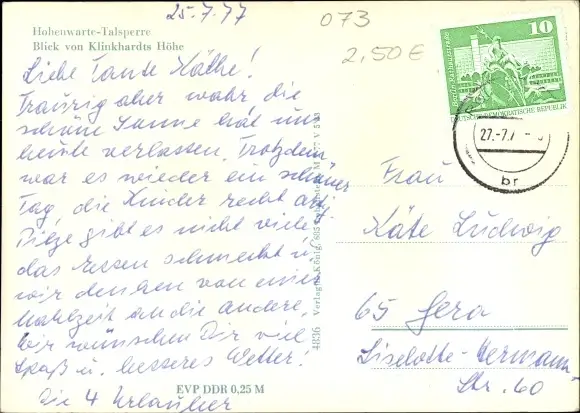 25.7.77
073
2,50€
Hohenwarte-Talsperre
Blick von Klinkhardts Höhe
Liebe Tante Käthe!
Traurig aber wahr, die
schöne Sonne hat uns
heute verlassen. Trotzdem
war es wieder ein schöner
Tag, die Kinder recht artig
Pilze gibt es nicht viele
das Essen schmeckt u.
wir denken von einer
Mahlzeit an die andere.
Wir wünschen Dir viel
Spaß u. besseres Wetter!
Die 4 Urlauber
EVP DDR 0,25 M
4836 Verlag H. König, 685
10
DEUTSCHE DEMOKRATISCHE REPUBLIK
27.-7.7
br
Frau
Käte Ludwig
65 Gera
Liselotte-Hermann
Str. 60